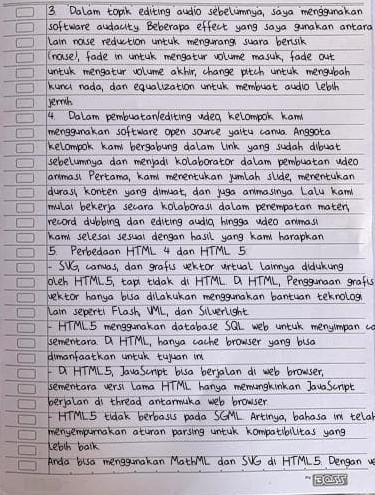 3. Dalam topik editing audio sebelumnya, saya menggunakan
software audacity. Beberapa effect yang saya gunakan antara
lain noise reduction untuk mengurangi suara berisik
(noise), fade in untuk mengatur volume masuk, fade out
untuk mengatur volume akhir, change pitch untuk mengubah
kunci nada, dan equalization untuk membuat audio lebih
jernih.
4. Dalam pembuatan/editing video, kelompok kami
menggunakan software open source yaitu canva. Anggota
kelompok kami bergabung dalam link yang sudah dibuat
sebelumnya dan menjadi kolaborator dalam pembuatan video
animasi. Pertama, kami menentukan jumlah slide, menentukan
durasi, konten yang dimuat, dan juga animasinya. Lalu kami
mulai bekerja secara kolaborasi dalam penempatan materi,
record dubbing dan editing audio, hingga video animasi
kami selesai sesuai dengan hasil yang kami harapkan.
5. Perbedaan HTML 4 dan HTML 5
- SVG, canvas, dan grafis vektor virtual lainnya didukung
oleh HTML5, tapi tidak di HTML. Di HTML, Penggunaan grafis
vektor hanya bisa dilakukan menggunakan bantuan teknologi
lain seperti Flash, VML, dan Silverlight
- HTML5 menggunakan database SQL web untuk menyimpan
sementara. Di HTML, hanya cache browser yang bisa
dimanfaatkan untuk tujuan ini
- Di HTML5, JavaScript bisa berjalan di web browser,
sementara versi lama HTML hanya memungkinkan JavaScript
berjalan di thread antarmuka web browser.
- HTML5 tidak berbasis pada SGML. Artinya, bahasa ini telah
menyempurnakan aturan parsing untuk kompatibilitas yang
lebih baik
Anda bisa menggunakan MathML dan SVG di HTML5. Dengan
BOSS